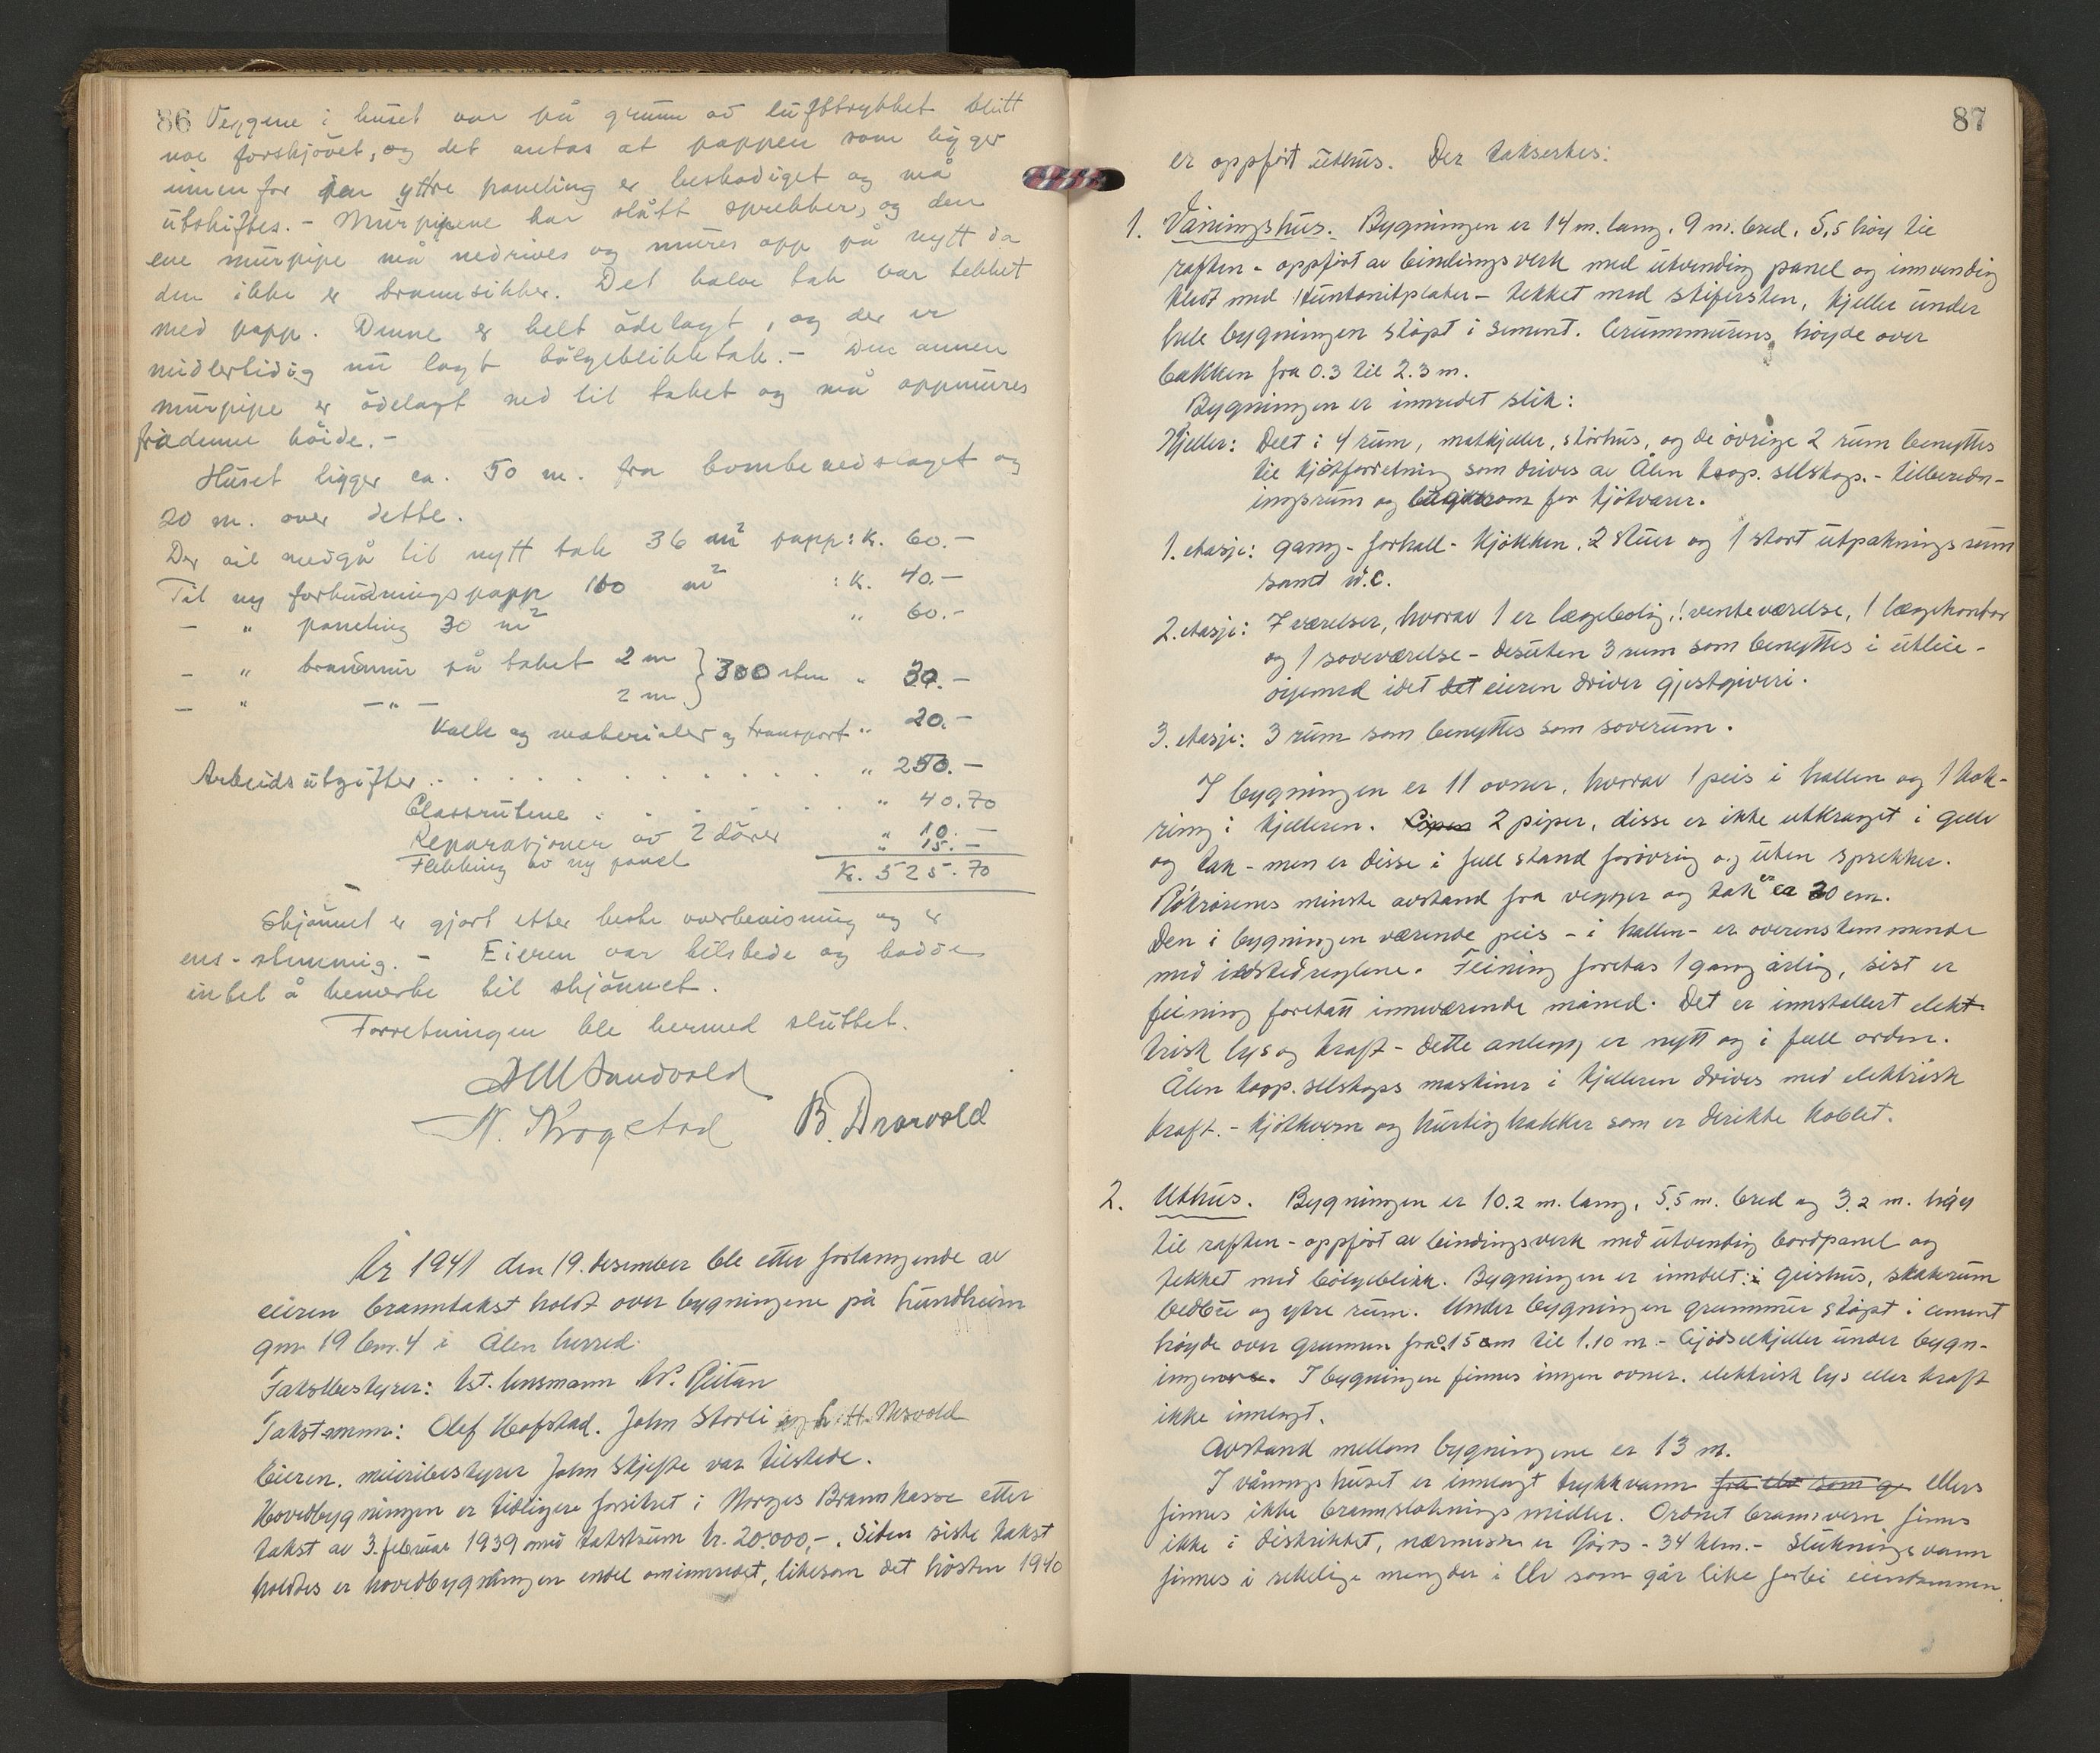 86 Veggene i huset var på grunn av lufttrykket blitt
noe forskjövet, og det antas at pappen som ligger
innenfor den yttre paneling er beskadiget og må
utskiftes. - Murpipene har slått sprekker, og den
ene murpipe må nedrives og mures opp på nytt da
den ikke er brannsikker. Det halve tak var tekket
med papp. Denne er helt ödelagt, og der er
midlertidig nu lagt bölgeblikktak. - Den annen
murpipe er ödelagt ned til taket og må oppmures
fra denne höide. -
Huset ligger ca. 50 m. fra bombenedslaget og
20 m. over dette.
Der vil medgå til nytt tak 36 m² papp: K. 60.-
Til ny forhudningspapp 100 m² : K. 40.-
- " paneling 30 m² " 60.-
- " brannmur på taket 2 m } 300 sten " 30.-
- " -"- 2 m
Kalk og materialer og transport " 20.-
Arbeidsutgifter . . . . . . . . . . " 250.-
Glassrutene . . . . . " 40.70
Reparasjoner av 2 dörer " 10.-
Flekking av ny panel " 15.-
Kr. 525.70
Skjönnet er gjort etter beste overbevisning og er
ens-stemmig. - Eieren var tilstede og hadde
intet å bemerke til skjönnet.
Forretningen ble hermed sluttet.
Sandvold
N. Krogstad B. Drarvold
År 1941 den 19. desember ble etter forlangende av
eieren branntakst holdt over bygningene på Lundheim
gnr. 19 bnr. 4 i Ålen herred.
Takstbestyrer: lensmann
Takstmenn: Olef Hofstad. John Storli og H. Nesvold
Eieren, meieribestyrer John Skjefte var tilstede.
Hovedbygningen er tidligere forsikret i Norges Brannkasse etter
takst av 3. februar 1939 med takstsum kr. 20.000,-. Siden siste takst
holdtes er hovedbygningen endel ominnredet, likesom det hösten 1940
87
er oppfört uthus. Der takseres:
1. Våningshus. Bygningen er 14 m. lang, 9 m. bred, 5,5 höy til
raften - oppfört av bindingsverk med utvendig panel og innvendig
kledt med Huntonitplater - tekket med skifersten, kjeller under
hele bygningen stöpt i sement. Grunnmurens höyde over
bakken fra 0.3 til 2.3 m.
Bygningen er innredet slik:
Kjeller: Delt i 4 rum, matkjeller, storhus, og de övrige 2 rum benyttes
til kjöttforretning som drives av Ålen koop. selskap. - tilberedn-
ingsrum og for kjötvarer.
1. etasje: gang - forhall - kjökken, 2 stuer og 1 stort utpakningsrum
samt w.c.
2. etasje: 7 værelser, hvorav 1 er lægebolig, 1 venteværelse, 1 lægekontor
og 1 soveværelse - desuten 3 rum som benyttes i utleie-
öyemed idet det eieren driver gjestgiveri.
3. etasje: 3 rum som benyttes som soverum.
I bygningen er 11 ovner, hvorav 1 peis i hallen og 1 kok-
ring i kjelleren. 2 piper, disse er ikke utkraget i gulv
og tak - men er disse i full stand forövrig og uten sprekker.
Rökrörenes minste avstand fra vegger og tak er ca 20 cm.
Den i bygningen værende peis - i hallen - er overenstemmende
med ildstedreglene. Feining foretas 1 gang årlig, sist er
feining foretatt inneværende måned. Det er innstallert elekt-
trisk lys og kraft - dette anlegg er nytt og i full orden.
Ålen koop. selskaps maskiner i kjelleren drives med elektrisk
kraft. - kjötkvern og hurtighakker som er direkte koblet.
2. Uthus. Bygningen er 10.2 m. lang, 5.5 m. bred og 3.2 m. höy
til raften - oppfört av bindingsverk med utvendig bordpanel og
tekket med bölgeblikk. Bygningen er inndelt i skaterum
vedbu og ytre rum. Under bygningen grunnmur stöpt i cement
höyde over grunnen fra 0.15 cm til 1.10 m. - Gjödselkjeller under bygn-
ingen. I bygningen finnes ingen ovner. elektrisk lys eller kraft
ikke innlagt.
Avstand mellom bygningene er 13 m.
I våningshuset er innlagt trykkvann fra elv som g ellers
finnes ikke brannslokningsmidler. Ordnet brannvern finnes
ikke i distriktet, nærmeste er Röros - 34 klm. - Slukningsvann
finnes i rikelige mengder i elv som går like forbi eiendommen.